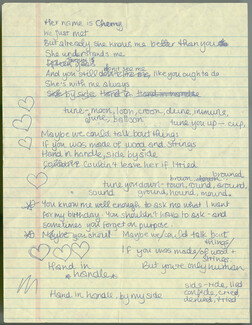 Her name is Cherry
We just met
But already she knows me better than you do
She understands me
And you still don't see me like you ought to do
She's with me always
Side by side Hand in hand in handle
tune-moon, loon, croon, dune immune,
June, balloon tune you up - cup,
Maybe we could talk bout things
If you was made of wood and strings
Hand in handle, side by side
Couldn't leave her if I tried
tune you down - town, round, around
sound ground, hound, mound
You know me well enough to ask me what I want
for my birthday. You shouldn't have to ask - and
sometimes you forget on purpose.
Maybe you should Maybe we could talk but
things/
If you was made of wood +
strings
Hand in But you're only human
handle
side-ride, lied
Hand in handle by my side
denied, tried